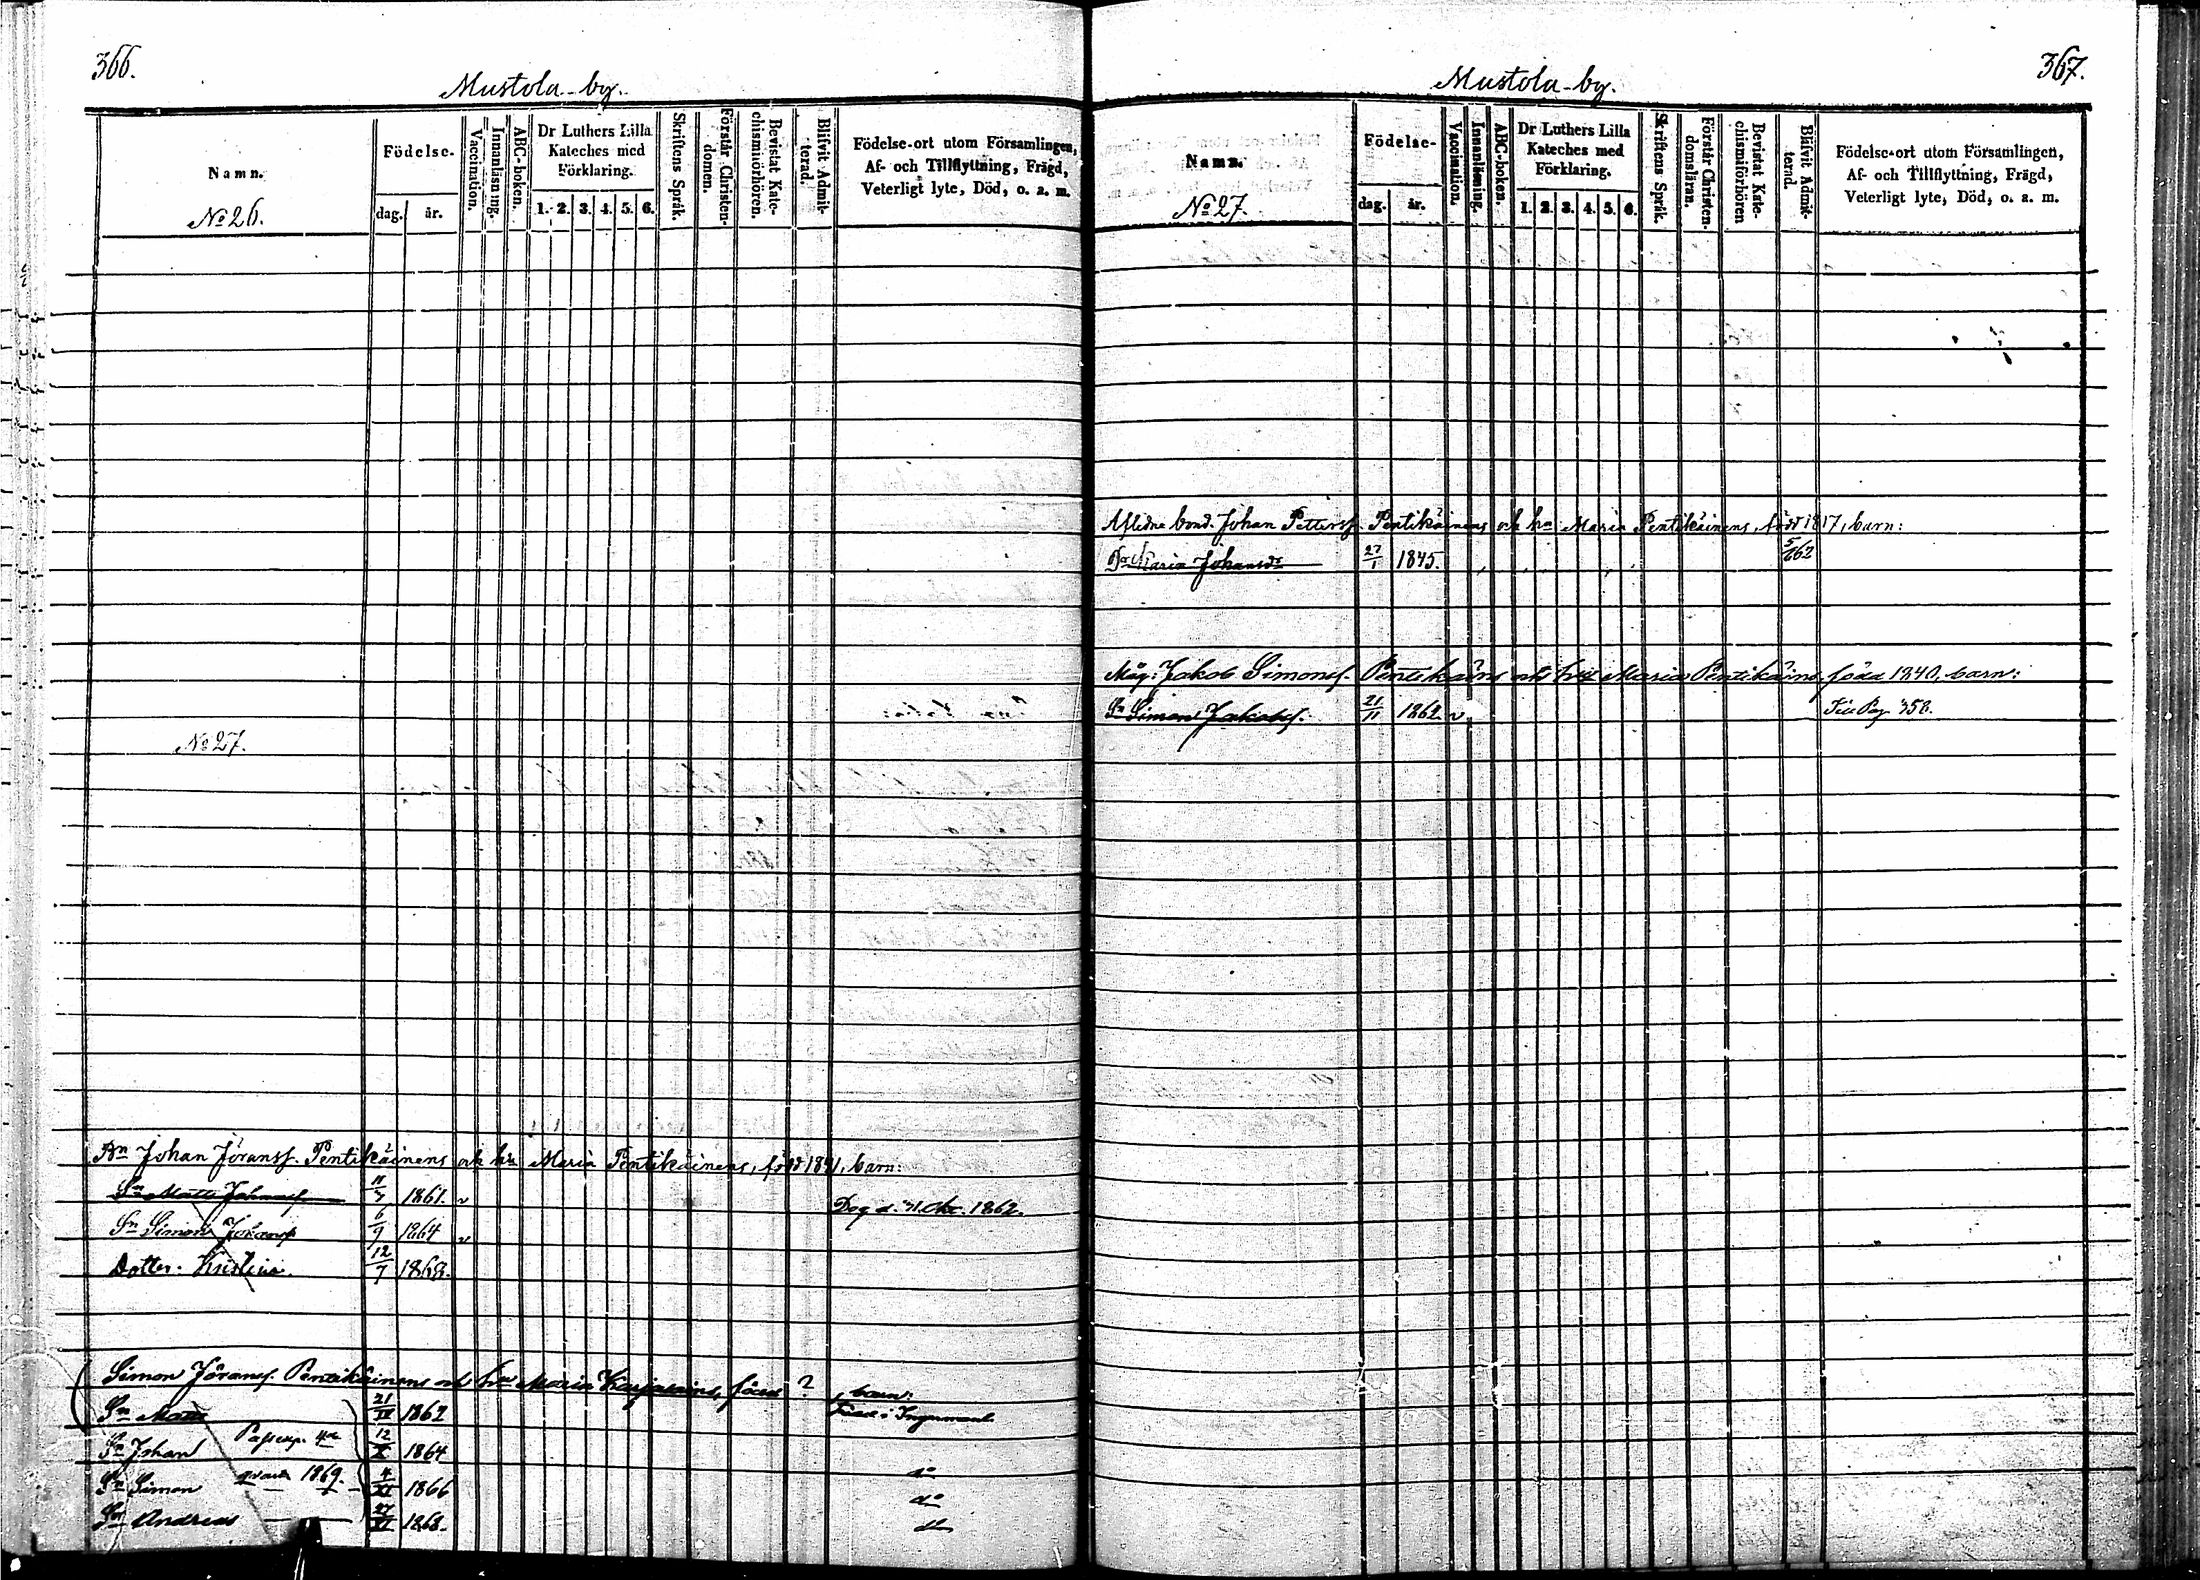 366.
Mustola by.
Namn.
No 26.
Födelse-
dag. år.
Vaccination.
Innanläsning.
ABC-boken.
Dr Luthers Lilla
Kateches med
Förklaring.
1. 2. 3. 4. 5. 6.
Skriftens Språk.
Förstår Christen-
domen.
Bevistat Kate-
chismiförhören.
Blifvit Admit-
terad.
Födelse-ort utom Församlingen,
Af- och Tillflyttning, Frägd,
Veterligt lyte, Död, o. a. m.
No 27.
Bn Johan Jöranss. Pentikäinens och hu Maria Pentikäinens, född 1841, barn:
Sn Matts Johanss. 11/7 1861. v Dog d. 31 Okt. 1862.
Sn Simon Johanss 6/9 1864 v
Dotter. Kristina. 12/7 1868.
Simon Jöranss. Pentikäinens och hu Maria Karjalains, född ? barn:
Sn Matts 21/IV 1862 Född i Ingermanl.
Sn Johan Passexp. 4de 12/X 1864 do
Sn Simon qvart. 1869. 4/XI 1866 do
Sn Andreas 27/VI 1868. do
367.
Mustola by.
Namn.
No 27.
Födelse-
dag. år.
Vaccination.
Innanläsning.
ABC-boken.
Dr Luthers Lilla
Kateches med
Förklaring.
1. 2. 3. 4. 5. 6.
Skriftens Språk.
Förstår Christen-
domsläran.
Bevistat Kate-
chismiförhören
Blifvit Admit-
terad.
Födelse-ort utom Församlingen,
Af- och Tillflyttning, Frägd,
Veterligt lyte, Död, o. a. m.
Aflidne bond. Johan Petterss. Pentikäinens och hu Maria Pentikäinens, född 1817, barn:
Dr Maria Johansdr 27/1 1845. 5/6 62
Måg: Jakob Simonss. Pentikäins och hust Maria Pentikäins född 1840, barn:
Sn Simon Jakobss. 21/11 1862. v Till Pag 358.